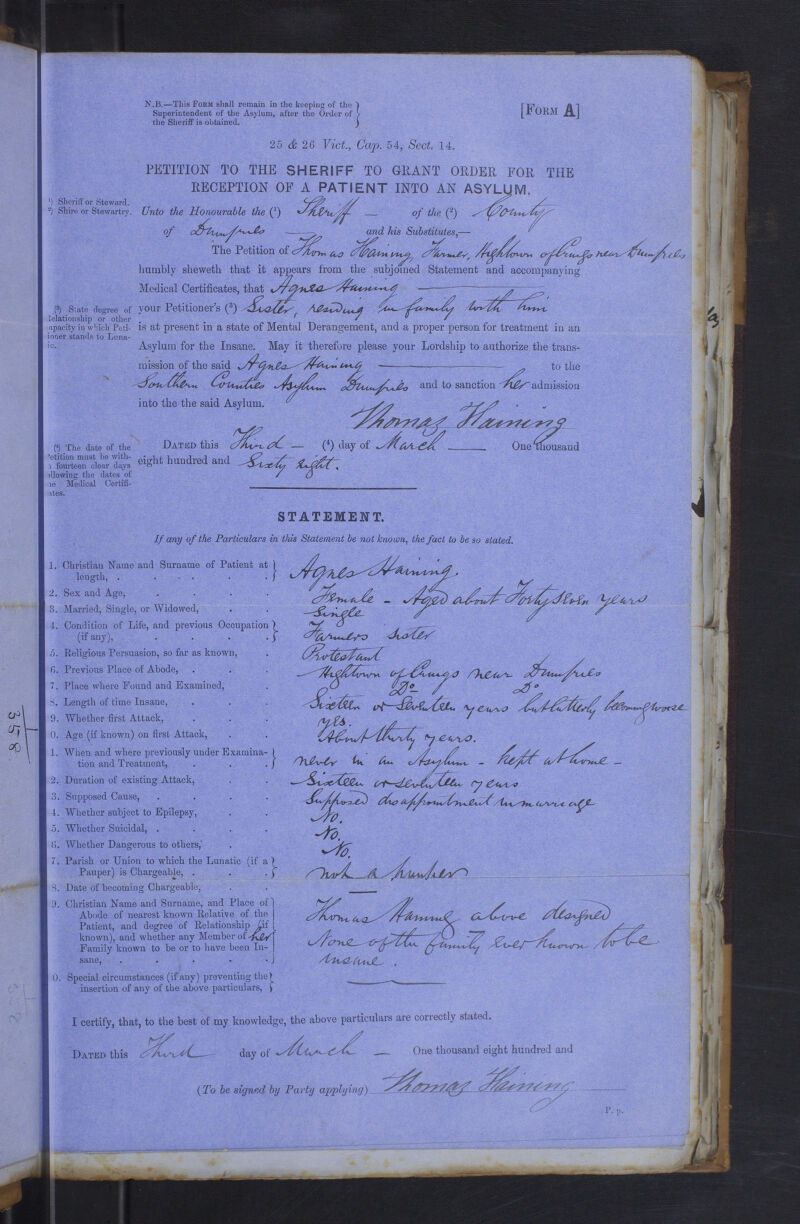 N.B.—This Form shall remain in the keeping of the
Superintendent of the Asylum, after the Order of
the Sheriff is obtained.
[Form A]
25 & 26 Vict., Cap. 54, Sect. 14.
PETITION TO THE SHERIFF TO GRANT ORDER FOR THE
RECEPTION OF A PATIENT INTO AN ASYLUM.
¹) Sheriff or Steward.
²) Shire or Stewartry.
Unto the Honourable the (¹) Sheriff — of the (²) County
of Dumfries — and his Substitutes,—
The Petition of Thomas Haining, Farmer, Hightown of Craigs near Dumfries
humbly sheweth that it appears from the subjoined Statement and accompanying
Medical Certificates, that Agnes Haining —
(³) State degree of
Relationship or other
apacity in which Peti-
ioner stands to Luna-
ic.
your Petitioner's (³) Sister, residing in family with him
is at present in a state of Mental Derangement, and a proper person for treatment in an
Asylum for the Insane. May it therefore please your Lordship to authorize the trans-
mission of the said Agnes Haining — to the
Southern Counties Asylum Dumfries and to sanction her admission
into the the said Asylum.
Thomas Haining
(⁴) The date of the
Petition must be with-
n fourteen clear days
ollowing the dates of
he Medical Certifi-
ates.
Dated this Third — (⁴) day of March — One thousand
eight hundred and Sixty Eight.
STATEMENT.
If any of the Particulars in this Statement be not known, the fact to be so stated.
1. Christian Name and Surname of Patient at
length, . . . . . . Agnes Haining.
2. Sex and Age, . . . . Female - Aged about Forty Seven years
3. Married, Single, or Widowed, . . Single
4. Condition of Life, and previous Occupation
(if any), . . . . . Farmers Sister
5. Religious Persuasion, so far as known, . Protestant
6. Previous Place of Abode, . . . Hightown of Craigs near Dumfries
7. Place where Found and Examined, . Do Do
8. Length of time Insane, . . . Sixteen or Seventeen years but latterly becoming worse
9. Whether first Attack, . . . yes.
0. Age (if known) on first Attack, . . About thirty years.
1. When and where previously under Examina-
tion and Treatment, . . . never in an Asylum - kept at home -
2. Duration of existing Attack, . . Sixteen or seventeen years
3. Supposed Cause, . . . . Supposed disappointment in marriage
4. Whether subject to Epilepsy, . . No.
5. Whether Suicidal, . . . . No.
6. Whether Dangerous to others, . . No.
7. Parish or Union to which the Lunatic (if a
Pauper) is Chargeable, . . . not a pauper
8. Date of becoming Chargeable, . . —
9. Christian Name and Surname, and Place of
Abode of nearest known Relative of the
Patient, and degree of Relationship (if
known), and whether any Member of her
Family known to be or to have been In-
sane, . . . . . .
Thomas Haining above designed
None of the family ever known to be
insane.
0. Special circumstances (if any) preventing the
insertion of any of the above particulars,
I certify, that, to the best of my knowledge, the above particulars are correctly stated.
Dated this Third day of March — One thousand eight hundred and
(To be signed by Party applying) Thomas Haining
P. p.
358